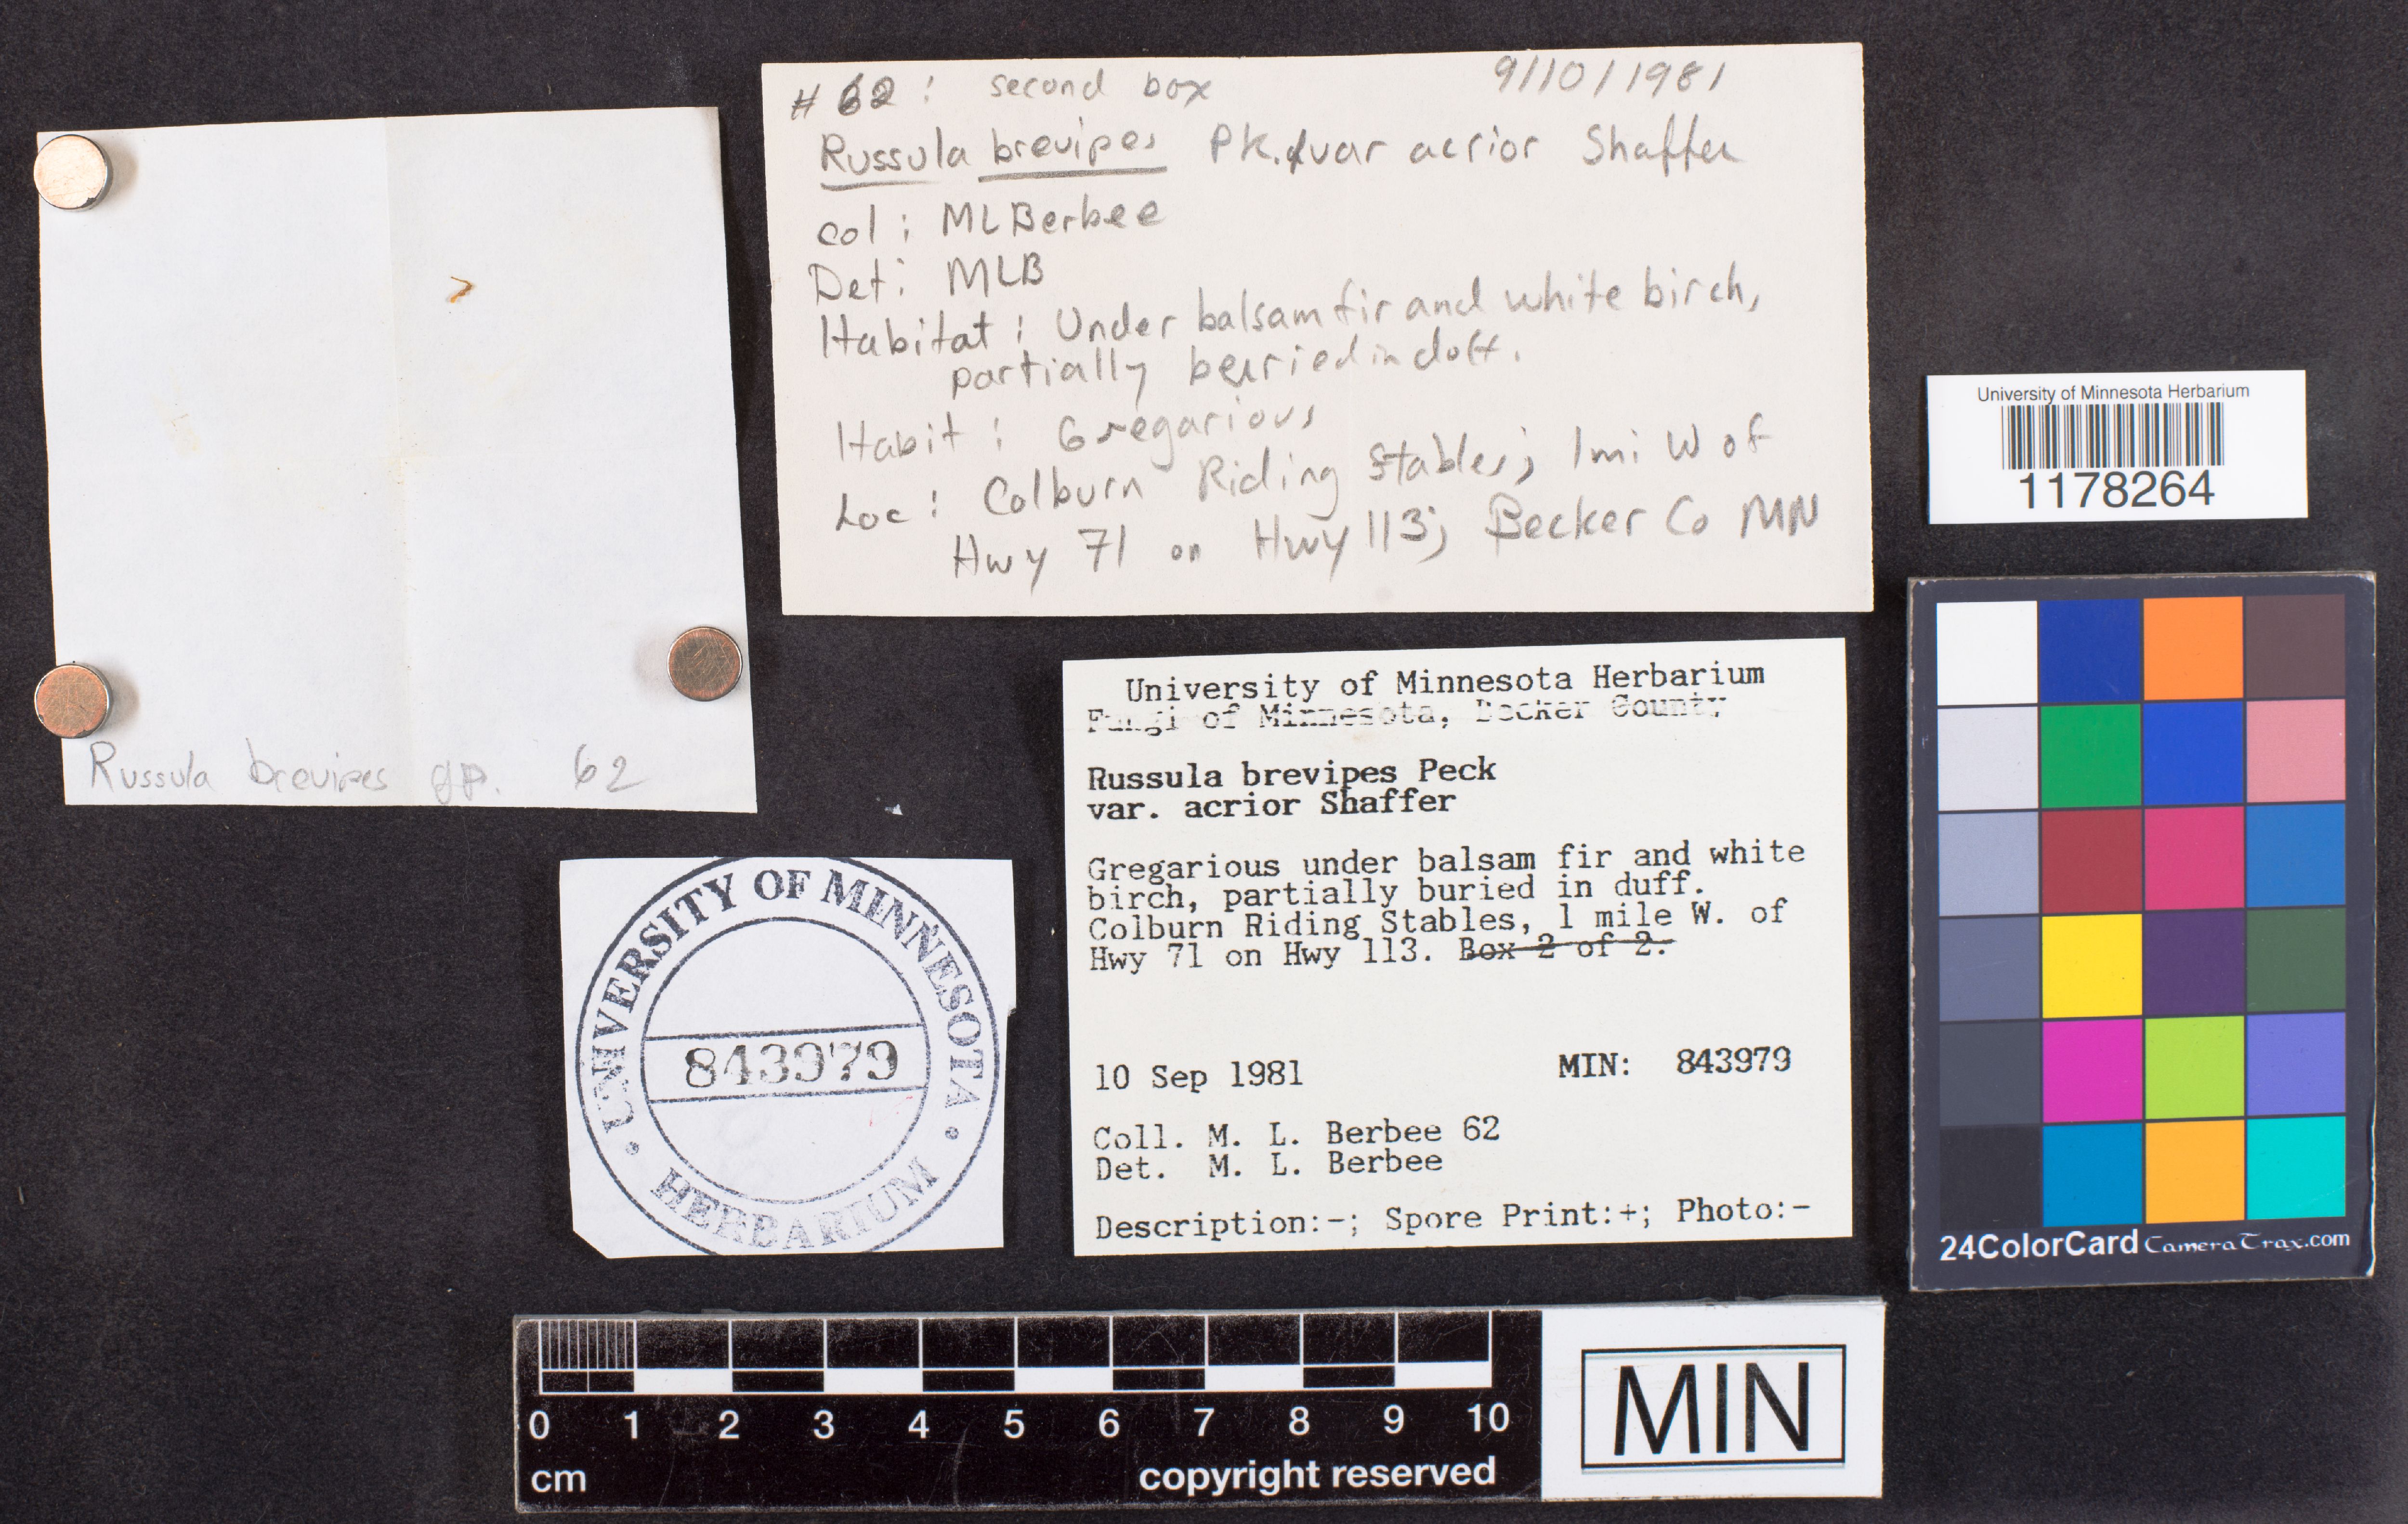 # 62: second box 9/10/1981
Russula brevipes Pk. var acrior Shaffer
col: MLBerbee
Det: MLB
Habitat: Under balsam fir and white birch,
partially buried in duff.
Habit: Gregarious
Loc: Colburn Riding Stables; 1 mi W of
Hwy 71 on Hwy 113; Becker Co MN
Russula brevipes gp. 62
University of Minnesota Herbarium
1178264
University of Minnesota Herbarium
Fungi of Minnesota, Becker County
Russula brevipes Peck
var. acrior Shaffer
Gregarious under balsam fir and white
birch, partially buried in duff.
Colburn Riding Stables, 1 mile W. of
Hwy 71 on Hwy 113. Box 2 of 2.
10 Sep 1981 MIN: 843979
Coll. M. L. Berbee 62
Det. M. L. Berbee
Description:-; Spore Print:+; Photo:-
UNIVERSITY OF MINNESOTA
843979
HERBARIUM
24ColorCard CameraTrax.com
0 1 2 3 4 5 6 7 8 9 10
cm copyright reserved
MIN